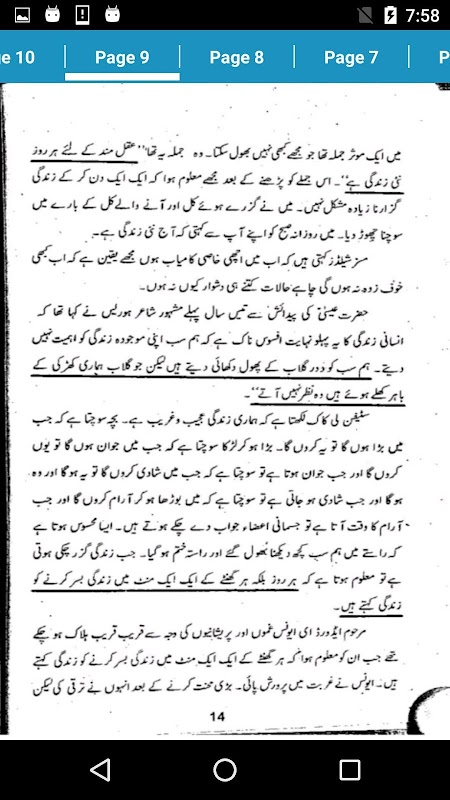 7:58
e 10 Page 9 Page 8 Page 7 P
میں ایک موثر جملہ تھا جو مجھے کبھی نہیں بھول سکتا۔ وہ جملہ یہ تھا ’’عقل مند کے لئے ہر روز
نئی زندگی ہے‘‘۔ اس جملے کو پڑھنے کے بعد مجھے معلوم ہوا کہ ایک ایک دن کر کے زندگی
گزارنا زیادہ مشکل نہیں۔ میں نے گزرے ہوئے کل اور آنے والے کل کے بارے میں
سوچنا چھوڑ دیا۔ میں روزانہ صبح کو اپنے آپ سے کہتی کہ آج نئی زندگی ہے۔
مسز شیلڈز کہتی ہیں کہ اب میں اچھی خاصی کامیاب ہوں مجھے یقین ہے کہ اب کبھی
خوف زدہ نہ ہوں گی چاہے حالات کتنے ہی دشوار کیوں نہ ہوں۔
حضرت عیسیٰؑ کی پیدائش سے تیس سال پہلے مشہور شاعر ہوریس نے کہا تھا کہ
انسانی زندگی کا یہ پہلو نہایت افسوس ناک ہے کہ ہم سب اپنی موجودہ زندگی کو اہمیت نہیں
دیتے۔ ہم سب کو دور گلاب کے پھول دکھائی دیتے ہیں لیکن جو گلاب ہماری کھڑکی کے
باہر کھلے ہوئے ہیں وہ نظر نہیں آتے‘‘۔
سٹیفن لی کاک لکھتا ہے کہ ہماری زندگی عجیب و غریب ہے۔ بچہ سوچتا ہے کہ جب
میں بڑا ہوں گا تو یہ کروں گا۔ بڑا ہو کر لڑکا سوچتا ہے کہ جب میں جوان ہوں گا تو یوں
کروں گا اور جب جوان ہوتا ہے تو سوچتا ہے کہ جب میں شادی کروں گا تو یہ ہو گا اور وہ
ہو گا اور جب شادی ہو جاتی ہے تو سوچتا ہے کہ میں بوڑھا ہو کر آرام کروں گا اور جب
آرام کا وقت آتا ہے تو جسمانی اعضاء جواب دے چکے ہوتے ہیں۔ ایسا محسوس ہوتا ہے
کہ راستے میں ہم سب کچھ دیکھنا بھول گئے اور راستہ ختم ہو گیا۔ جب زندگی گزر چکی ہوتی
ہے تو معلوم ہوتا ہے کہ ہر روز بلکہ ہر گھنٹے کے ایک ایک منٹ میں زندگی بسر کرنے کو
زندگی کہتے ہیں۔
مرحوم ایڈورڈ ای ایونس غموں اور پریشانیوں کی وجہ سے قریب قریب ہلاک ہو چکے
تھے جب ان کو معلوم ہوا کہ ہر گھنٹے کے ایک ایک منٹ میں زندگی بسر کرنے کو زندگی کہتے
ہیں۔ ایونس نے غربت میں پرورش پائی۔ بڑی محنت کرنے کے بعد انہوں نے ترقی کی لیکن
14